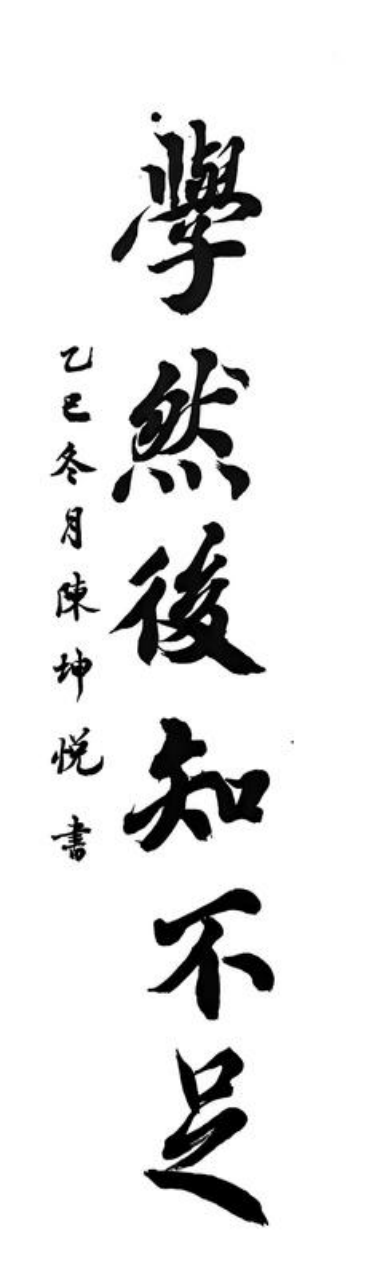 學然後知不足
乙巳冬月陳坤悦書